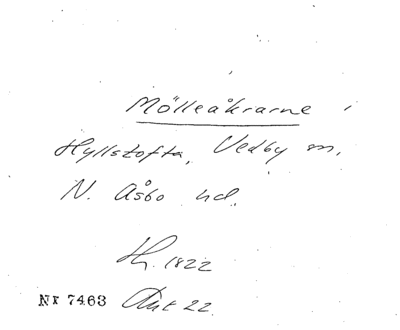 Mölleåkrarne i
Hyllstofta, Vedby sn,
N. Åsbo hd.
1822
Nr 7463 Akt 22.